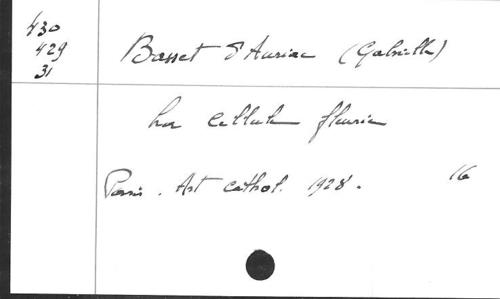 430
429
31
Basset d'Auriac (Gabrielle)
La cellule fleurie
Paris. Art cathol. 1928. 16